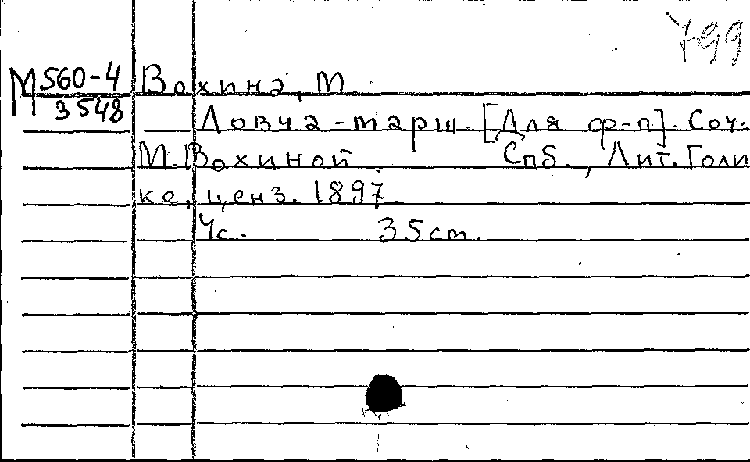 799
М 560-4
3548
Вохина, М.
Ловча-марш. [Для ф-п]. Соч.
М. Вохиной. Спб., Лит. Голи
ке, ценз. 1897.
4с. 35 см.